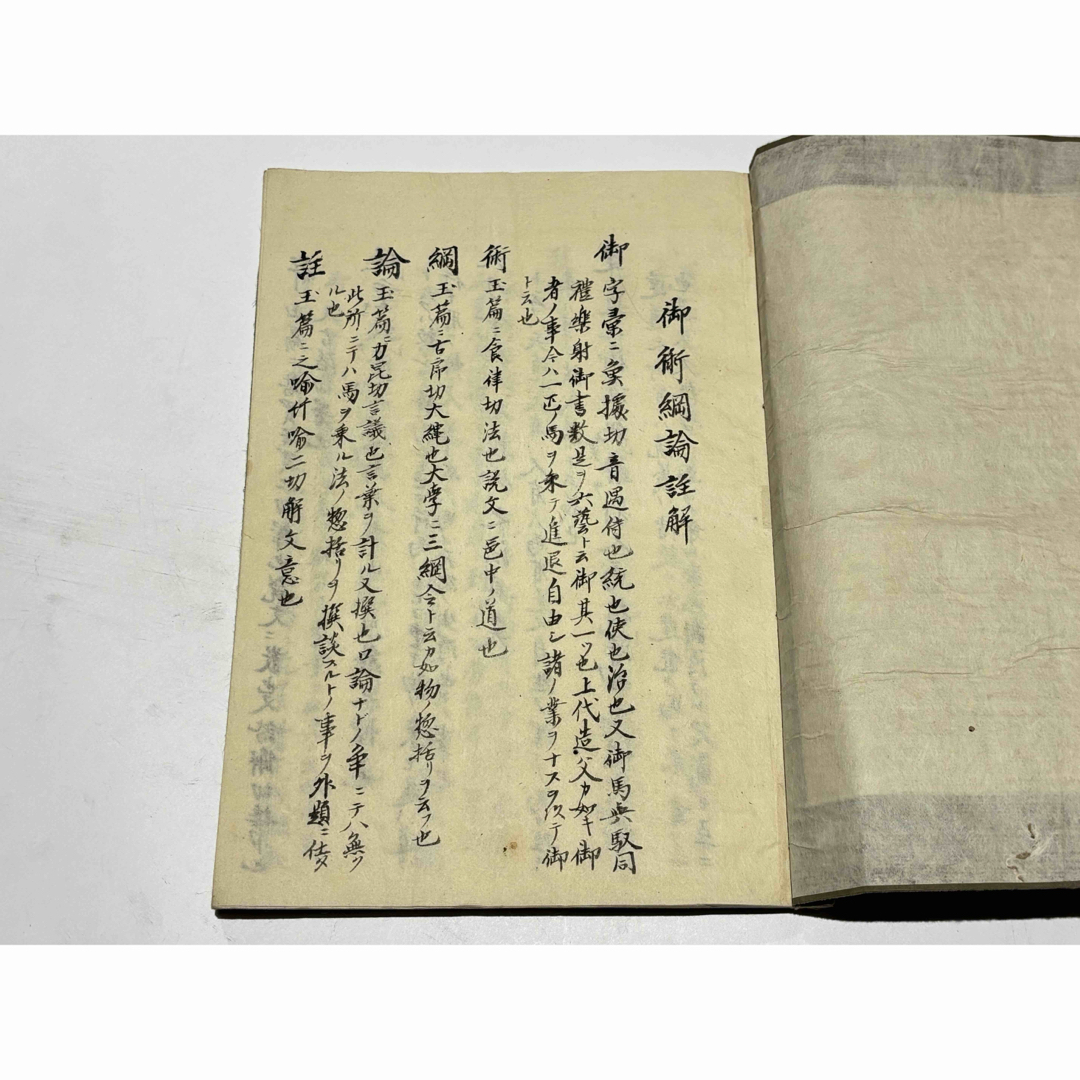 御術綱論註解
御 字彙ニ魚據切音遇侍也統也使也治也又御馬與馭同
禮樂射御書数是ヲ六藝ト云御其一ツ也上代造父カ如キ御
者ノ事今ハ一疋ノ馬ヲ乗テ進退自由シ諸ノ業ヲナスヲ以テ御
ト云也
術 玉篇ニ食律切法也説文ニ邑中ノ道也
綱 玉篇ニ古席切大縄也大学ニ三綱令ト云カ如物ノ惣括リヲ云フ也
論 玉篇ニ力昆切言議也言葉ヲ計ル又撰也口論ナトノ争ニテハ無ク
此所ニテハ馬ヲ乗ル法ノ惣括リヲ撰談スルトノ事ヲ外題ニ仕タ
ル也
註 玉篇ニ之喩竹喩二切解文意也